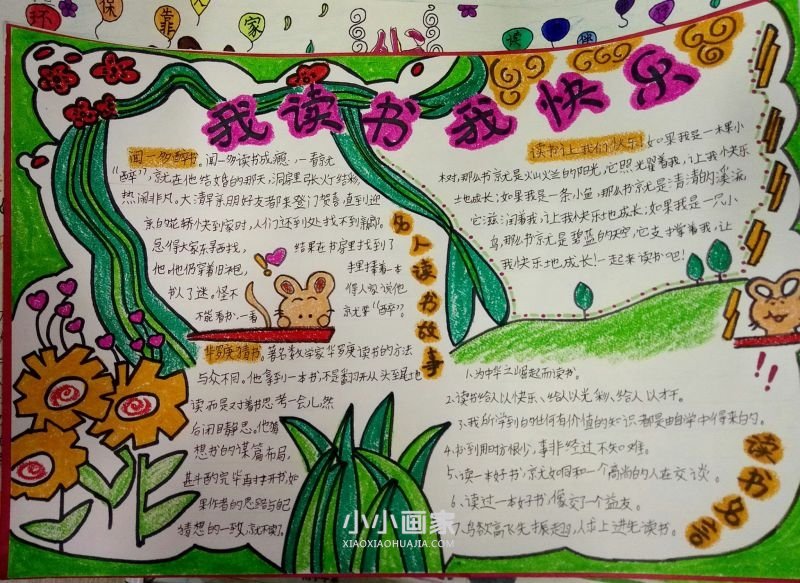 环
保
靠
非
人
家
读
我读书我快乐
闻一多醉书。闻一多读书成瘾,一看就
“醉”,就在他结婚的那天,洞房里张灯结彩,
热闹非凡。大清早亲朋好友都来登门贺喜,直到迎
亲的花轿快到家时,人们还到处找不到新郎。
急得大家东寻西找,结果在书房里找到了
他,他仍穿着旧袍,手里捧着一本
书入了迷。怪不得人家说他
不能看书,一看就要“醉”。
名人读书故事
华罗庚猜书。著名数学家华罗庚读书的方法
与众不同。他拿到一本书,不是翻开从头至尾地
读,而是对着书思考一会儿,然
后闭目静思。他猜
想书的谋篇布局,
甚斗酌完毕再打开书,如
果作者的思路与自己
猜想的一致,就不读了。
读书让我们快乐!如果我是一木果小
树,那么书就是火山火兰的阳光,它照光翟着我,让我快乐
地成长;如果我是一条小鱼,那么书就是清清的溪流,
它滋润着我,让我快乐地成长;如果我是一只小
鸟,那么书就是碧蓝的天空,它支撑着我,让
我快乐地成长!一起来读书吧!
1.为中华之崛起而读书。
2.读书给人以快乐、给人以光彩、给人以才干。
3.我所学到的任何有价值的知识都是由自学中得来的。
4.书到用时方恨少,事非经过不知难。
5.读一本好书,就如同和一个高尚的人在交谈。
6.读过一本好书,像交了个益友。
7.鸟欲高飞先振翅,人求上进先读书。
读书名言
小小画家
XIAOXIAOHUAJIA.COM